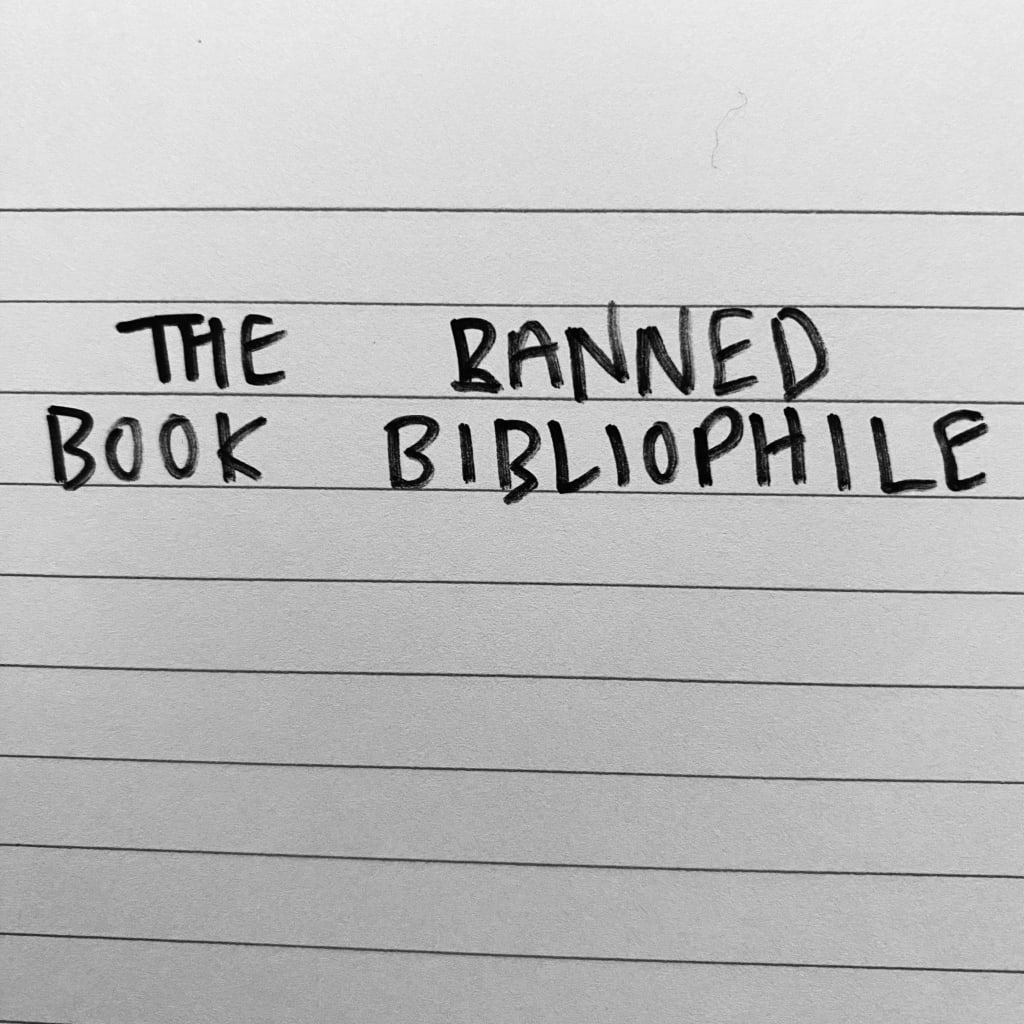 THE BANNED
BOOK BIBLIOPHILE